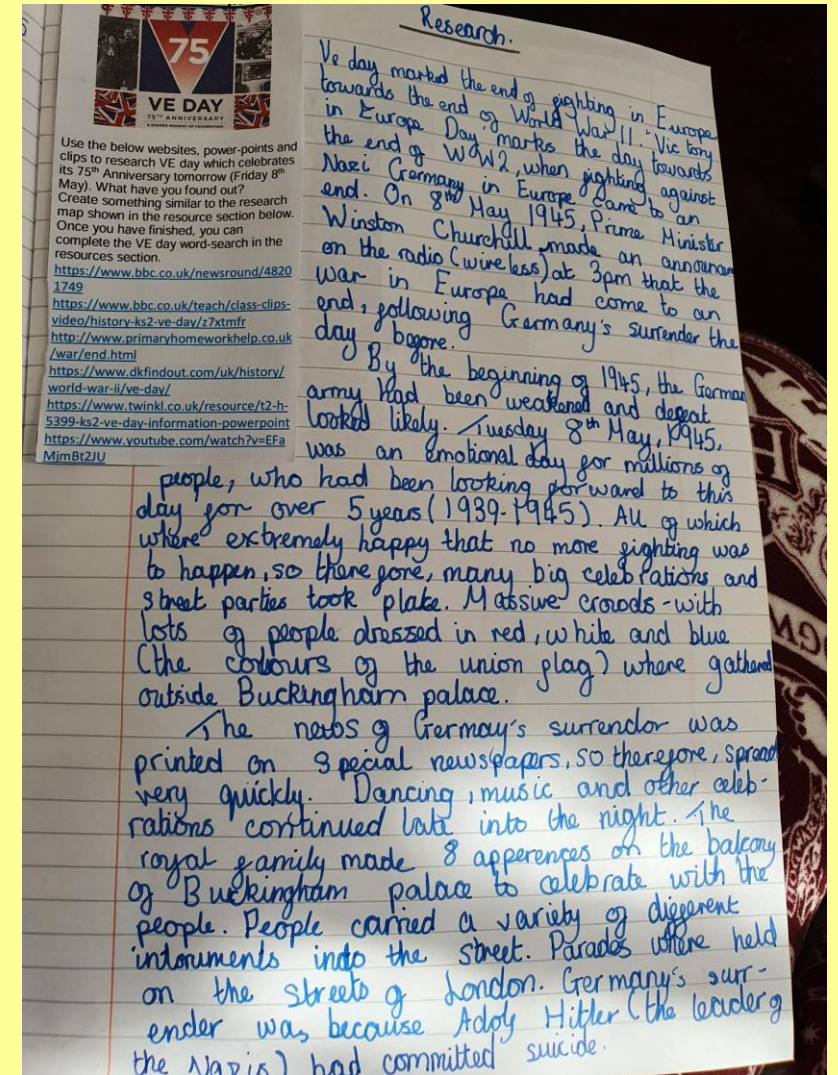 75
VE DAY
75TH ANNIVERSARY
A SHARED MOMENT OF CELEBRATION
Use the below websites, power-points and
clips to research VE day which celebrates
its 75th Anniversary tomorrow (Friday 8th
May). What have you found out?
Create something similar to the research
map shown in the resource section below.
Once you have finished, you can
complete the VE day word-search in the
resources section.
https://www.bbc.co.uk/newsround/4820
1749
https://www.bbc.co.uk/teach/class-clips-
video/history-ks2-ve-day/z7xtmfr
http://www.primaryhomeworkhelp.co.uk
/war/end.html
https://www.dkfindout.com/uk/history/
world-war-ii/ve-day/
https://www.twinkl.co.uk/resource/t2-h-
5399-ks2-ve-day-information-powerpoint
https://www.youtube.com/watch?v=EFa
MjmBt2JU
Research.
Ve day marked the end of fighting in Europe
towards the end of World War II. 'Victory
in Europe Day' marks the day towards
the end of WW2, when fighting against
Nazi Germany in Europe came to an
end. On 8th May 1945, Prime Minister
Winston Churchill made an announ
on the radio (wireless) at 3pm that the
war in Europe had come to an
end, following Germany's surrender the
day before.
By the beginning of 1945, the German
army had been weakened and defeat
looked likely. Tuesday 8th May, 1945,
was an emotional day for millions of
people, who had been looking forward to this
day for over 5 years (1939-1945). All of which
where extremely happy that no more fighting was
to happen, so therefore, many big celebrations and
street parties took plake. Massive crowds - with
lots of people dressed in red, white and blue
(the colours of the union flag) where gathered
outside Buckingham palace.
The news of Germay's surrendor was
printed on special newspapers, so therefore, spread
very quickly. Dancing, music and other celeb-
rations continued late into the night. The
royal family made 8 apperences on the balcony
of Buckingham palace to celebrate with the
people. People carried a variety of different
intoruments into the street. Parades where held
on the streets of London. Germany's surr-
ender was because Adolf Hitler (the leader of
the Nazis) had committed suicide.